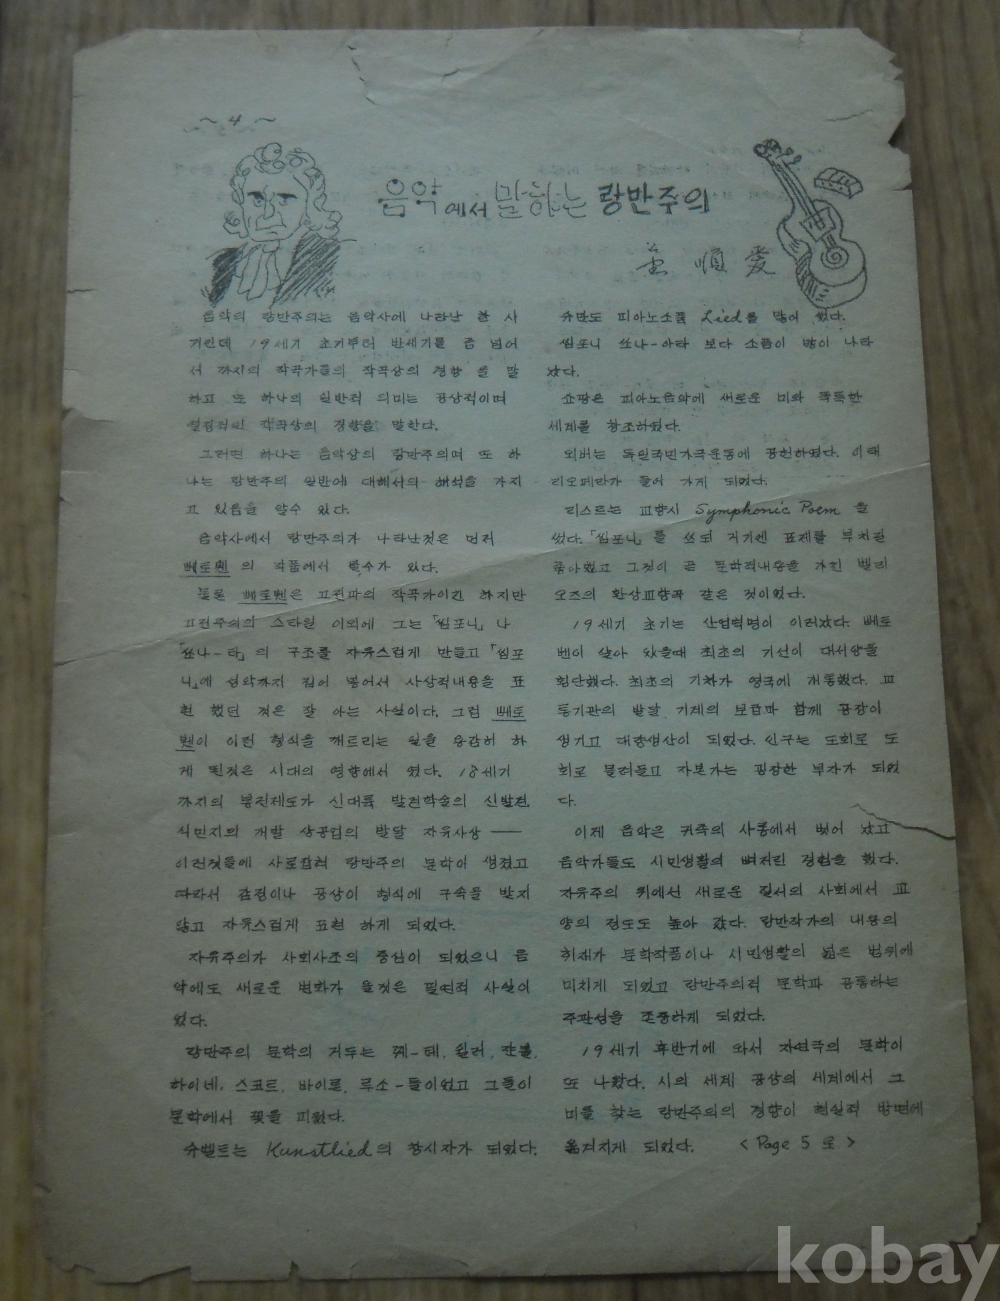 ~ 4 ~
음악에서 말하는 랑반주의
順愛
음악의 랑반주의는 음악사에 나타난 한 사
기인데 19세기 초기부터 반세기를 좀 넘어
서 까지의 작곡가들의 작곡상의 경향을 말
하고 또 하나의 일반적 의미는 공상적이며
작곡상의 경향을 말한다.
그러면 하나는 음악상의 랑만주의며 또 하
나는 랑만주의 일반에 대해서의 해석을 가지
고 있음을 알수 있다.
음악사에서 랑만주의가 나타난것은 먼저
뻬토벤의 작품에서 볼수가 있다.
물론 뻬토벤은 고전파의 작곡가이긴 하지만
고전주의의 스타일 이외에 그는「씸포니」나
「쏘나-타」의 구조를 자유스럽게 만들고「씸포
니」에 성악까지 집어 넣어서 사상적내용을 표
현 했던 것은 잘 아는 사실이다. 그럼 뻬토
벤이 이런 형식을 깨트리는 일을 용감히 하
게 된것은 시대의 영향에서 였다. 18세기
까지의 봉건제도가 신대륙 발견학술의 신발견
식민지의 개발 상공업의 발달 자유사상 ——
이런것들에 사로잡혀 랑만주의 문학이 생겼고
따라서 감정이나 공상이 형식에 구속을 받지
않고 자유스럽게 표현 하게 되었다.
자유주의가 사회사조의 중심이 되었으니 음
악에도 새로운 변화가 올것은 필연적 사실이
었다.
랑만주의 문학의 거두는 께-테, 쉴러, 잔폴,
하이네, 스코트, 바이론, 루소-들이었고 그들이
문학에서 꽃을 피웠다.
슈벨트는 Kunstlied의 창시자가 되었다.
슈만도 피아노소품 Lied를 많이 썼다.
씸포니 쏘나-타 보다 소품이 많이 나타
났다.
쇼팡은 피아노음악에 새로운 미와 독특한
세계를 창조하였다.
외버는 독일국민가극운동에 공헌하였다. 이태
리오페라가 들어 가게 되었다.
리스트는 교향시 Symphonic Poem 을
썼다.「씸포니」를 쓰되 거기엔 표제를 부치길
좋아했고 그것이 곧 문학적내용을 가진 벨리
오즈의 환상교향곡 같은 것이었다.
19세기 초기는 산업혁명이 이러났다. 뻬토
벤이 살아 있을때 최초의 기선이 대서양을
횡단했다. 최초의 기차가 영국에 개통했다. 교
통기관의 발달 기계의 보급과 함께 공장이
생기고 대량생산이 되었다. 인구는 도회로 도
회로 몰려들고 자본가는 굉장한 부자가 되었
다.
이제 음악은 귀족의 사롱에서 벗어 났고
음악가들도 시민생활의 뼈저린 경험을 했다.
자유주의 위에선 새로운 질서의 사회에서 교
양의 정도도 높아 갔다. 랑만작가의 내용의
취재가 문학작품이나 시민생활의 넓은 범위에
미치게 되었고 랑만주의적 문학과 공통하는
주관성을 존중하게 되었다.
19세기 후반기에 와서 자연주의 문학이
또 나왔다. 시의 세계 공상의 세계에서 그
미를 찾는 랑만주의의 경향이 현실적 방면에
옮겨지게 되었다. <Page 5 로>
kobay